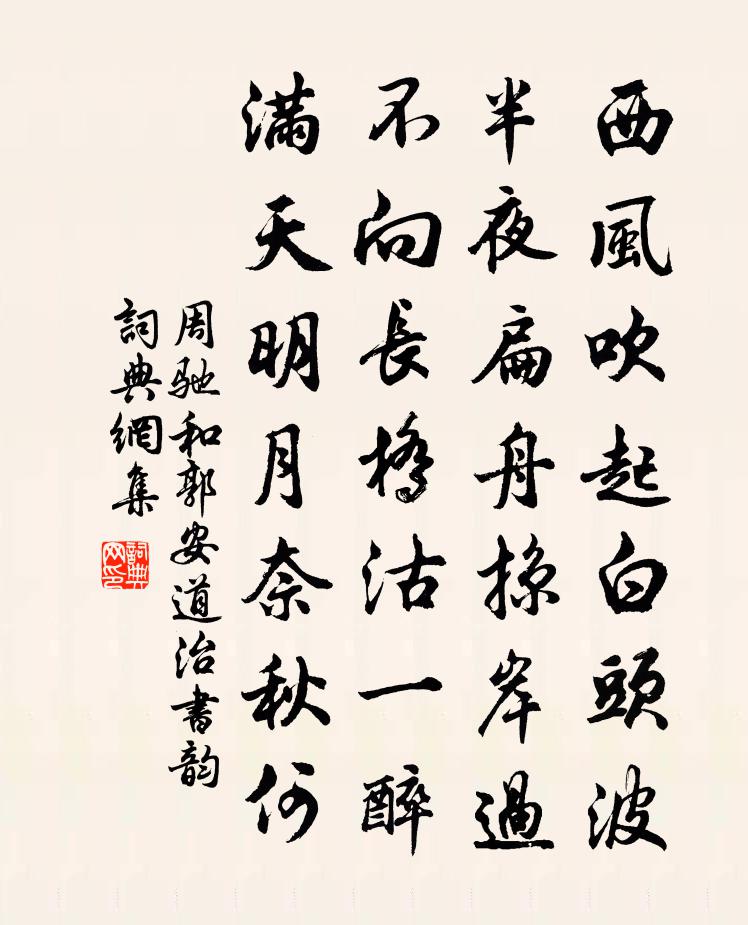 西風吹起白頭波
半夜扁舟掠岸過
不向長橋沽一醉
滿天明月奈秋何
周馳和郭安道治書韵
詞典網集
詞典網印